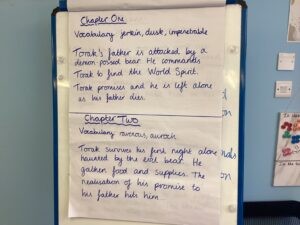 Chapter One
Vocabulary jerkin, dusk, impenetrable
Torak's father is attacked by a
demon possed bear. He commands
Torak to find the World Spirit.
Torak promises and he is left alone
as his father dies.
Chapter Two
Vocabulary ravenous, auroch
Torak survives his first night alone
haunted by the evil bear. He
gathers food and supplies. The
realisation of his promise to
his father hits him.